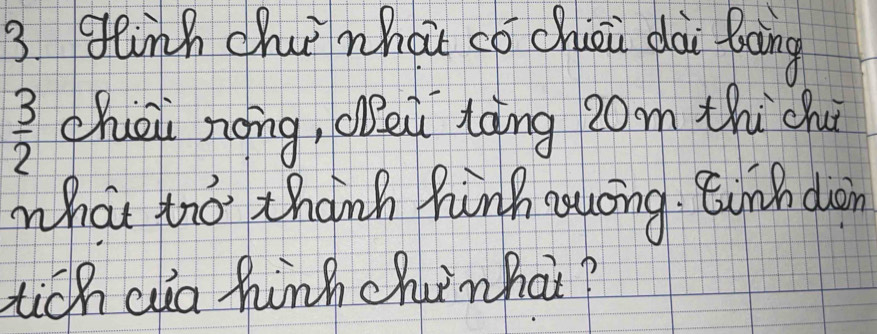 3. Hình chữ nhật có chiều dài bằng
3/2 chiều rộng, Nếu tăng 20m thì chữ
nhật trở thành hình vuông. Tính diện
tích của hình chữ nhật?